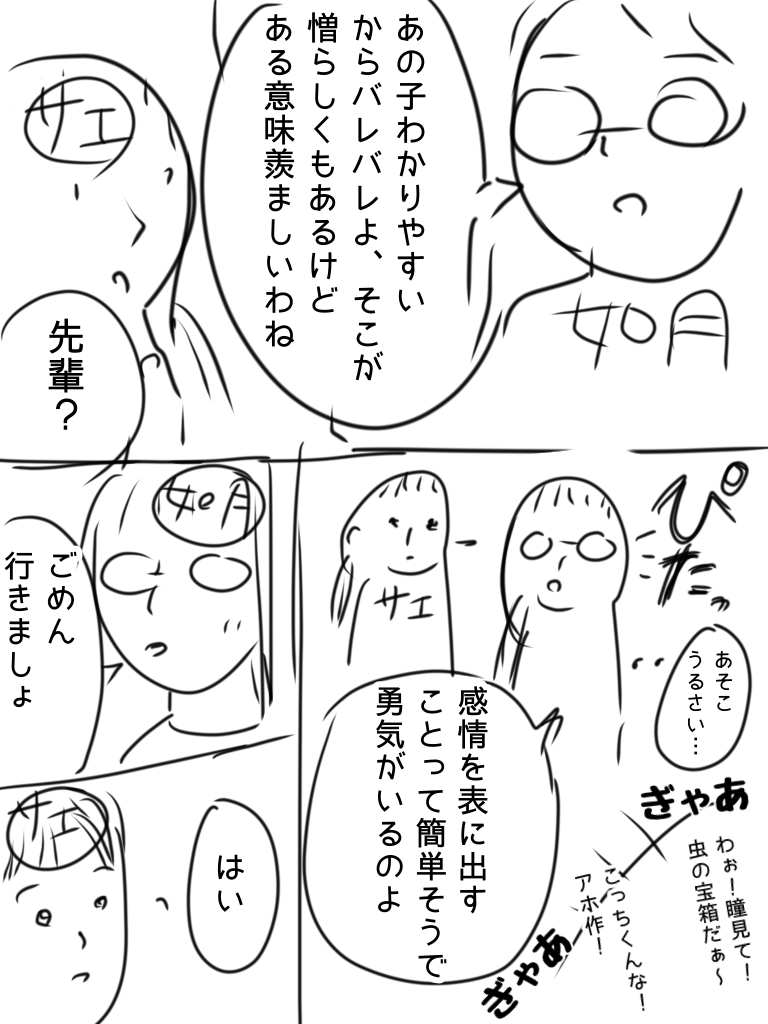 如月
あの子わかりやすい
からバレバレよ、そこが
憎らしくもあるけど
ある意味羨ましいわね
サエ
先輩？
ぴたっ
あそこ
うるさい…
サエ
感情を表に出す
ことって簡単そうで
勇気がいるのよ
ぎゃあ
わぉ！瞳見て！
虫の宝箱だぁ～
こっちくんな！
アホ作！
ぎゃあ
如月
ごめん
行きましょ
サエ
はい